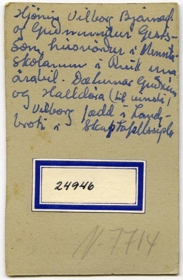 Hjónin Vilborg Bjarnad.
og Guðmundur Gests-
son, húsvörður í Mennta-
skólanum í Rvík um
árabil. Dæturnar Guðrún
og Halldóra (til vinstri)
Vilborg fædd í Land-
broti í Skaptafellssýslu
24946
N-7714